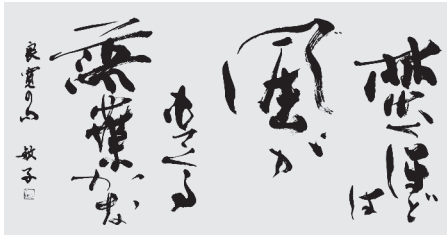 焚くほどは
風が
もてくる
落葉かな
良寛の句 敏子